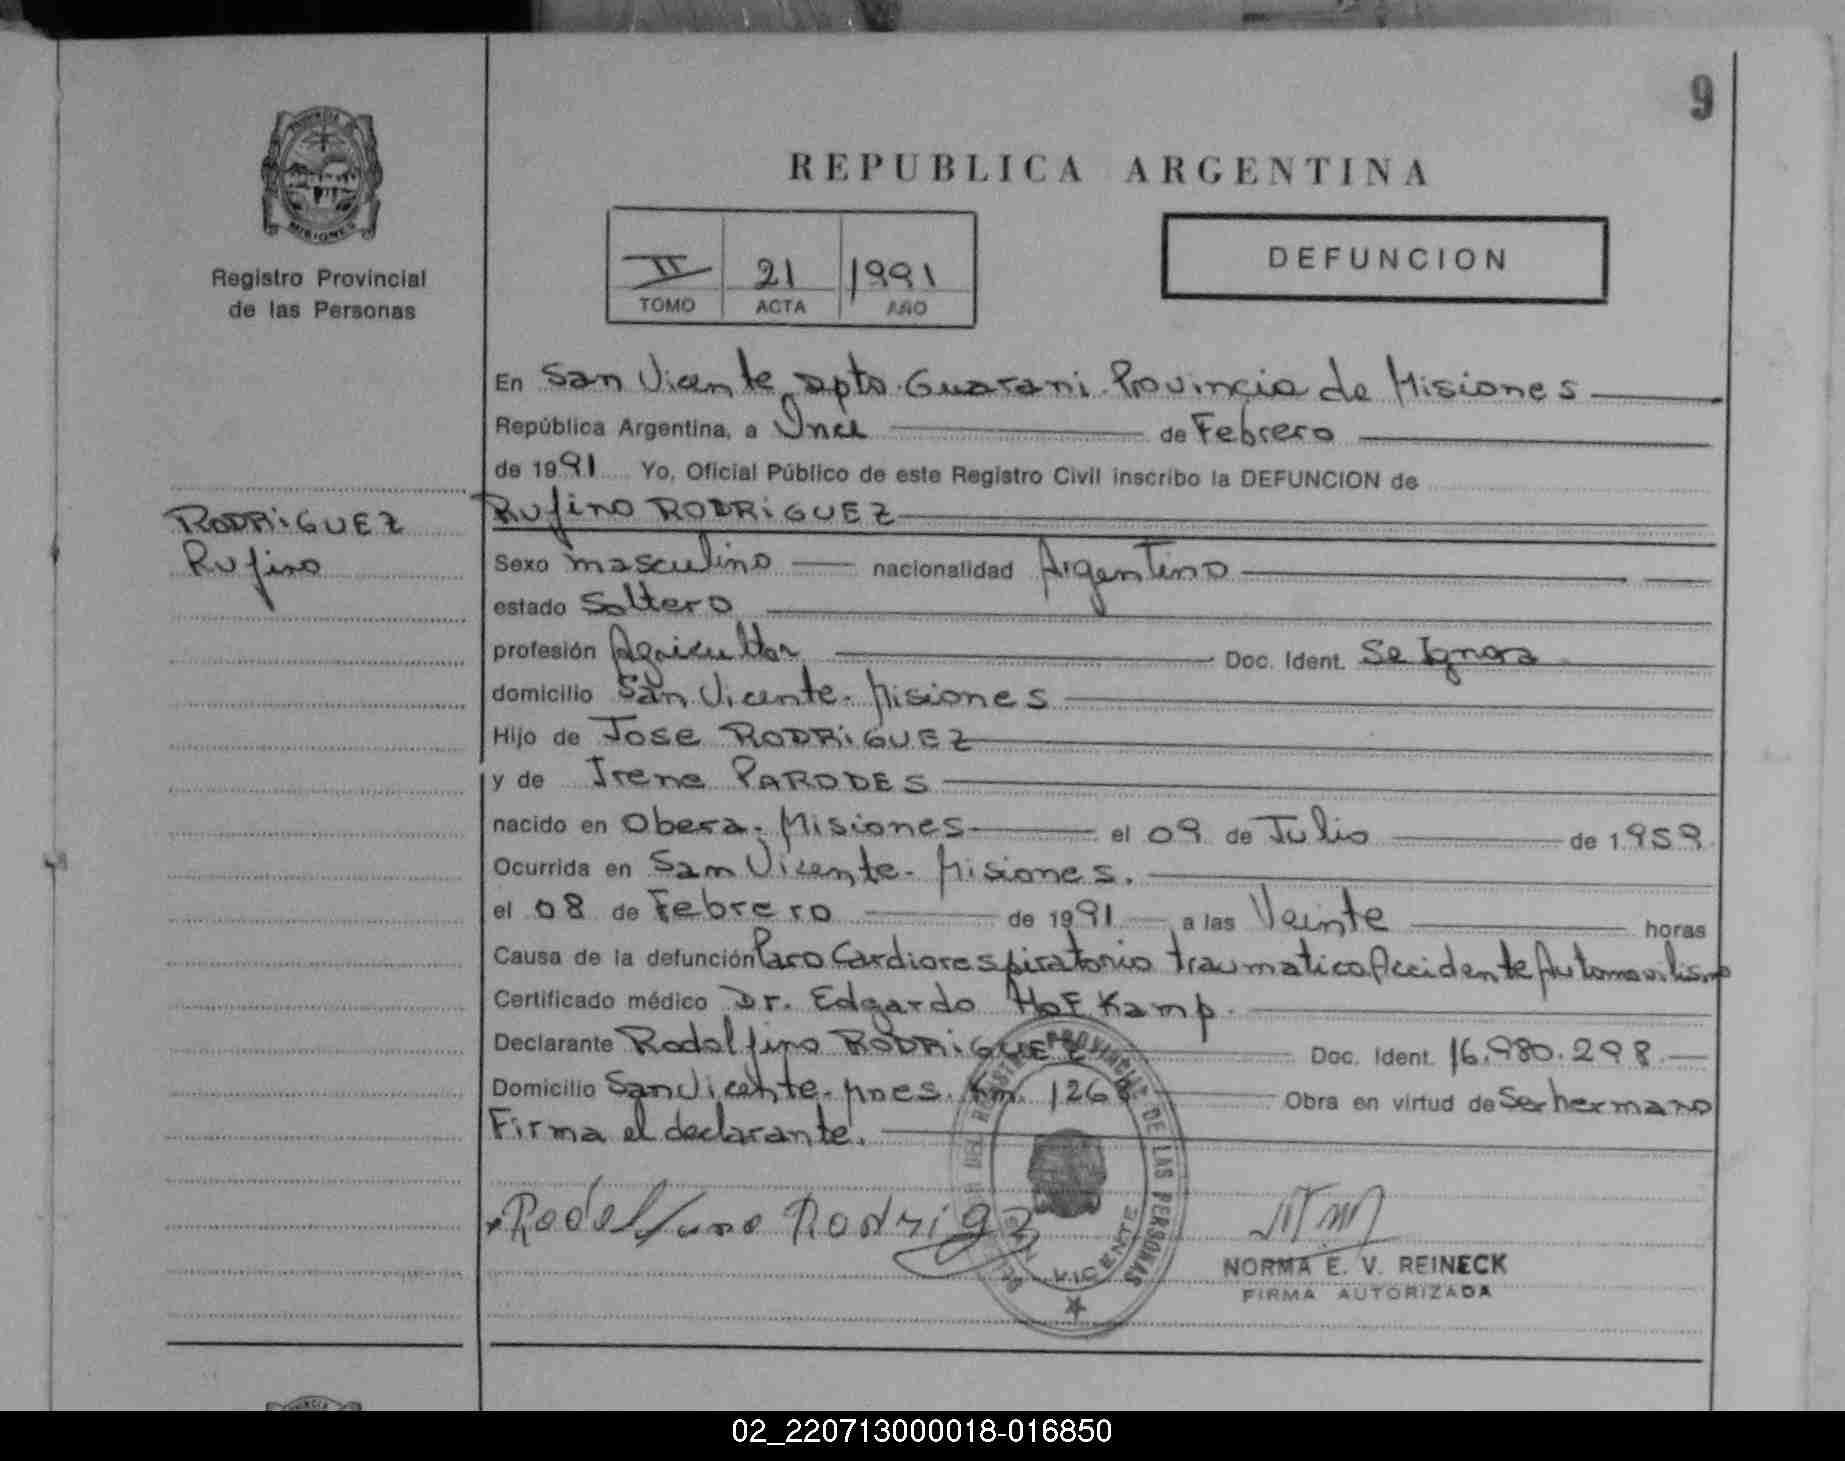 9
PROVINCIA DE
MISIONES
Registro Provincial
de las Personas
REPUBLICA ARGENTINA
II 21 1991
TOMO ACTA AÑO
DEFUNCION
En San Vicente Dpto. Guarani. Provincia de Misiones
República Argentina, a Once de Febrero
de 1991 Yo, Oficial Público de este Registro Civil inscribo la DEFUNCION de
RODRiGUEZ
Rufino
Rufino RODRiGUEZ
Sexo masculino nacionalidad Argentino
estado Soltero
profesión Agricultor Doc. Ident. Se Ignora
domicilio San Vicente. Misiones
Hijo de Jose RODRiGUEZ
y de Irene PARODES
nacido en Obera. Misiones el 09 de Julio de 1959
Ocurrida en San Vicente. Misiones.
el 08 de Febrero de 1991 a las Veinte horas
Causa de la defunción Paro Cardiorespiratorio traumatico Accidente
Certificado médico Dr. Edgardo Hof Kamp.
Declarante Rodolfino RODRiGUEZ Doc. Ident. 16.980.298.
Domicilio San Vicente. Mnes. Km. Obra en virtud de Ser hermano
Firma el declarante.
Rodolfino
PROVINCIAL DE LAS PERSONAS
VICENTE
NORMA E. V. REINECK
FIRMA AUTORIZADA
02_220713000018-016850